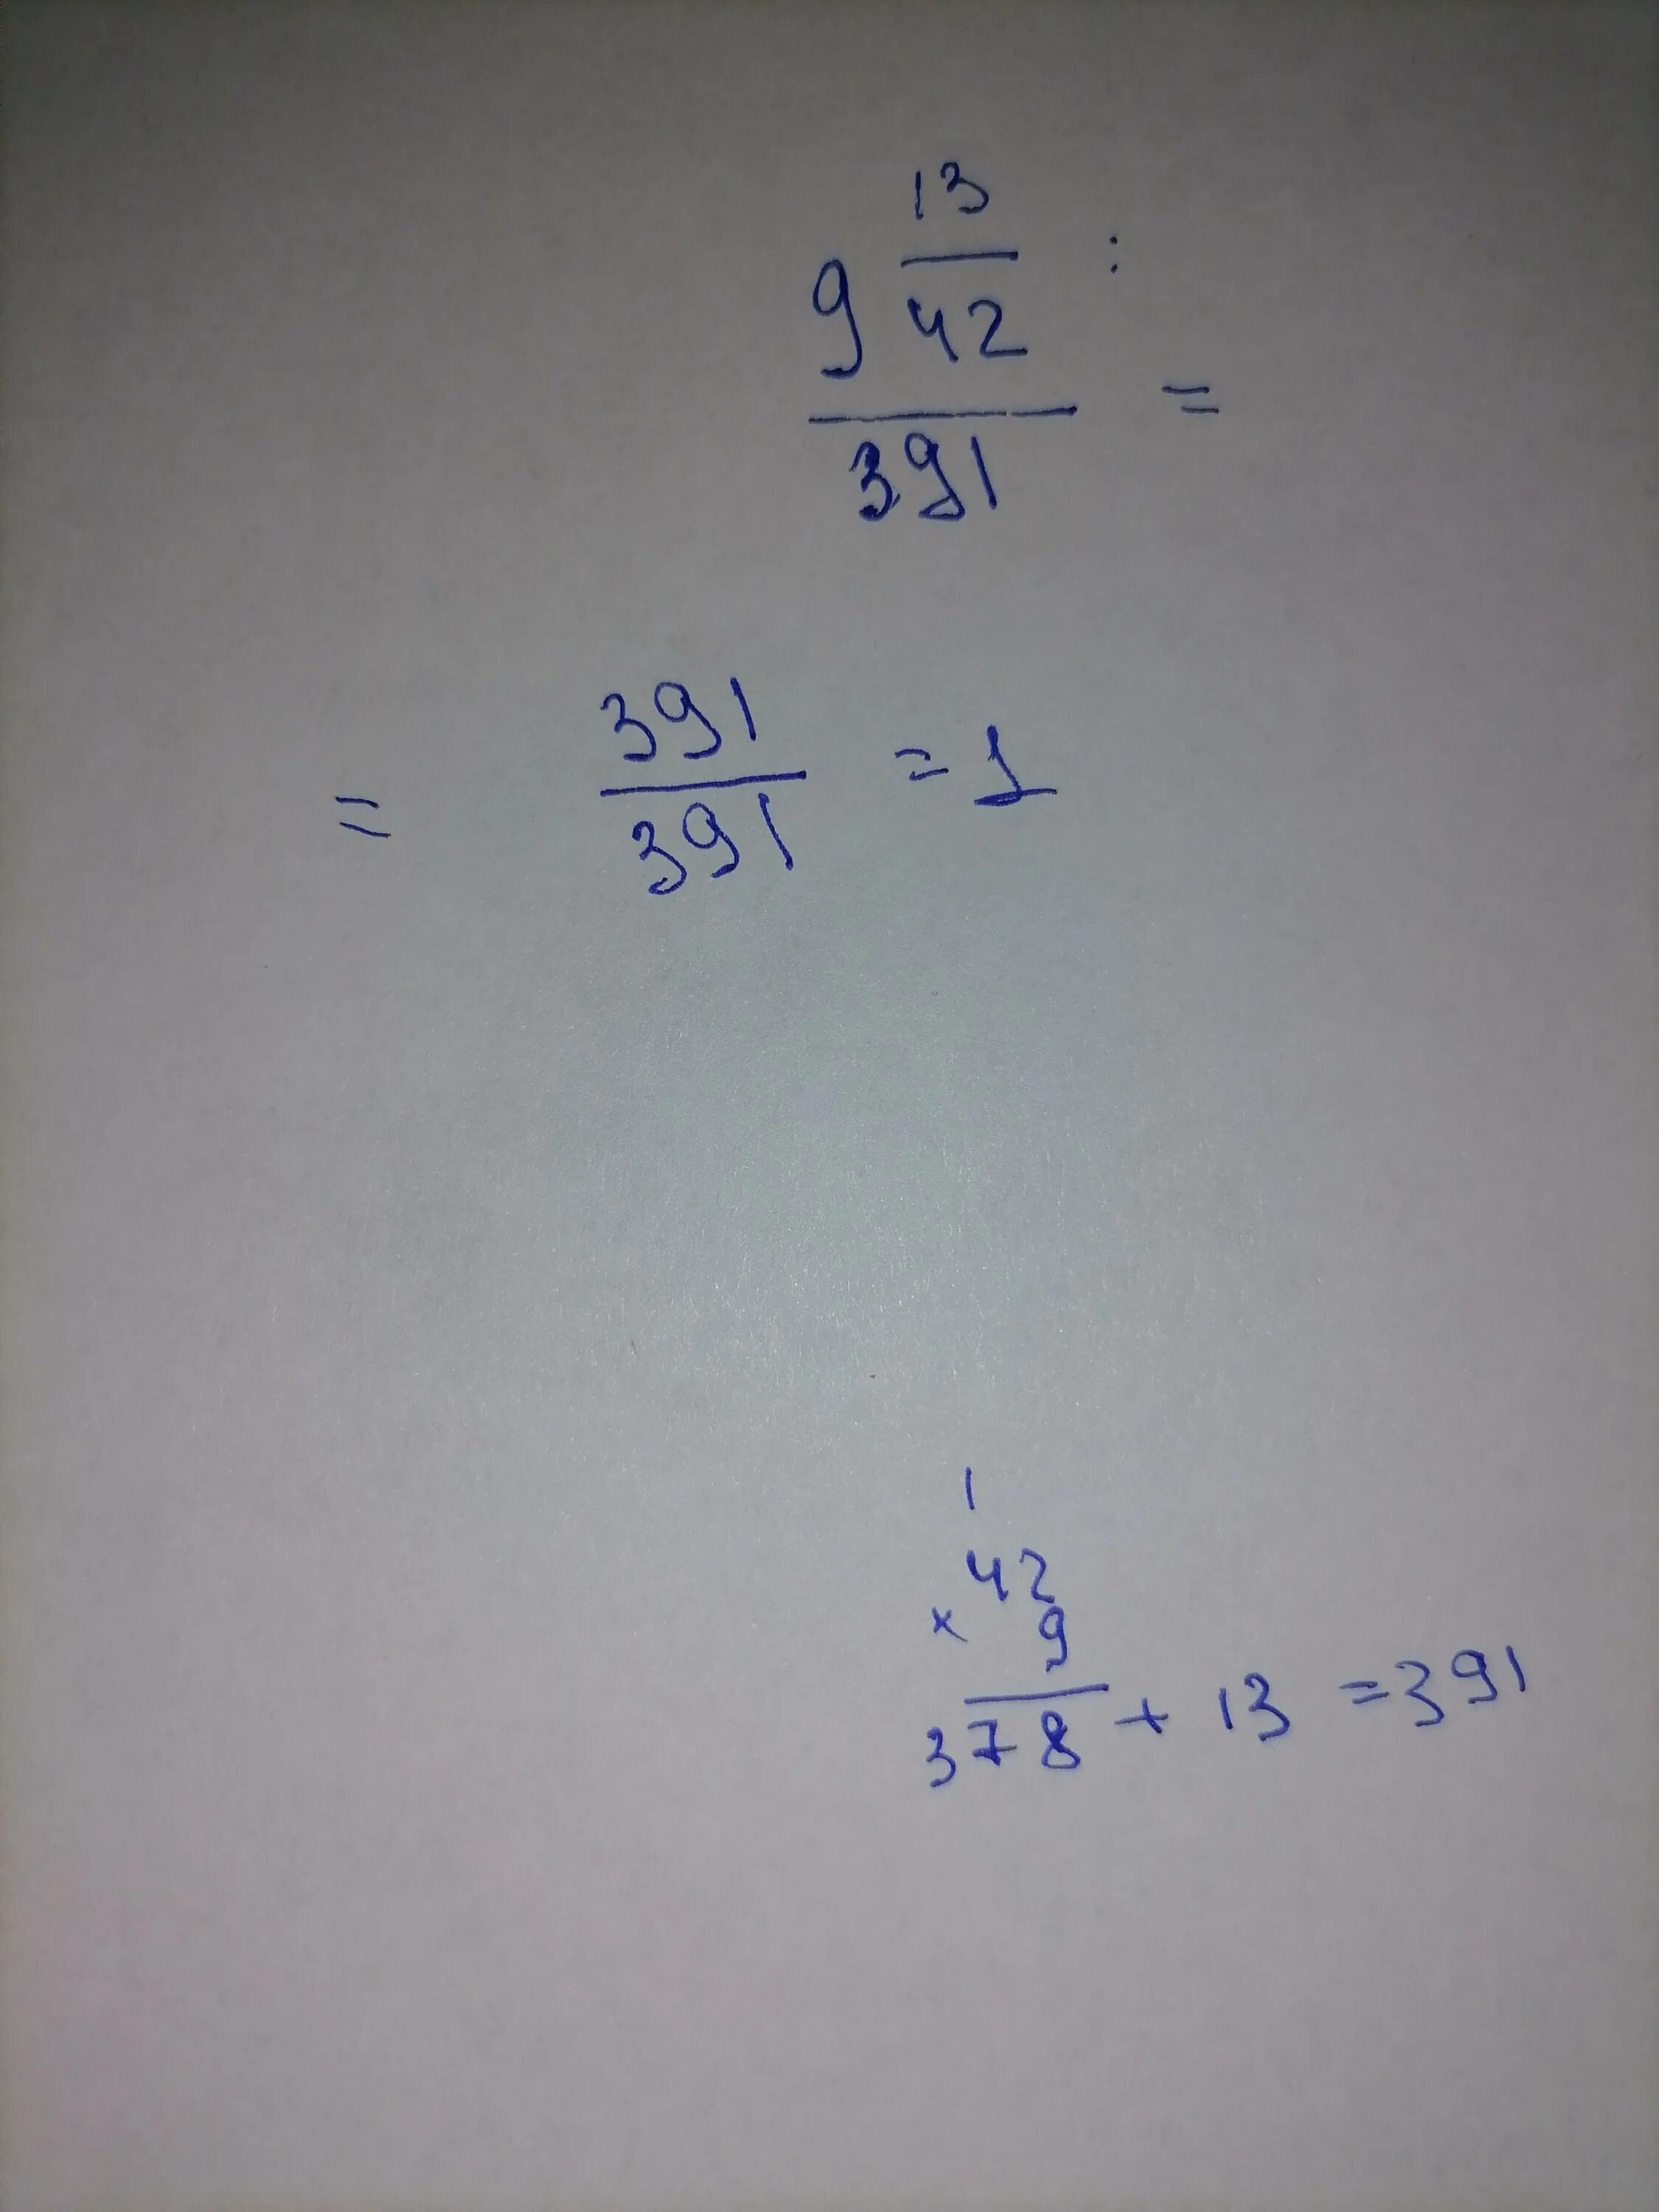 13
9 — :
42
— =
391
391
= — = 1
391
1
42
× 9
378 + 13 = 391